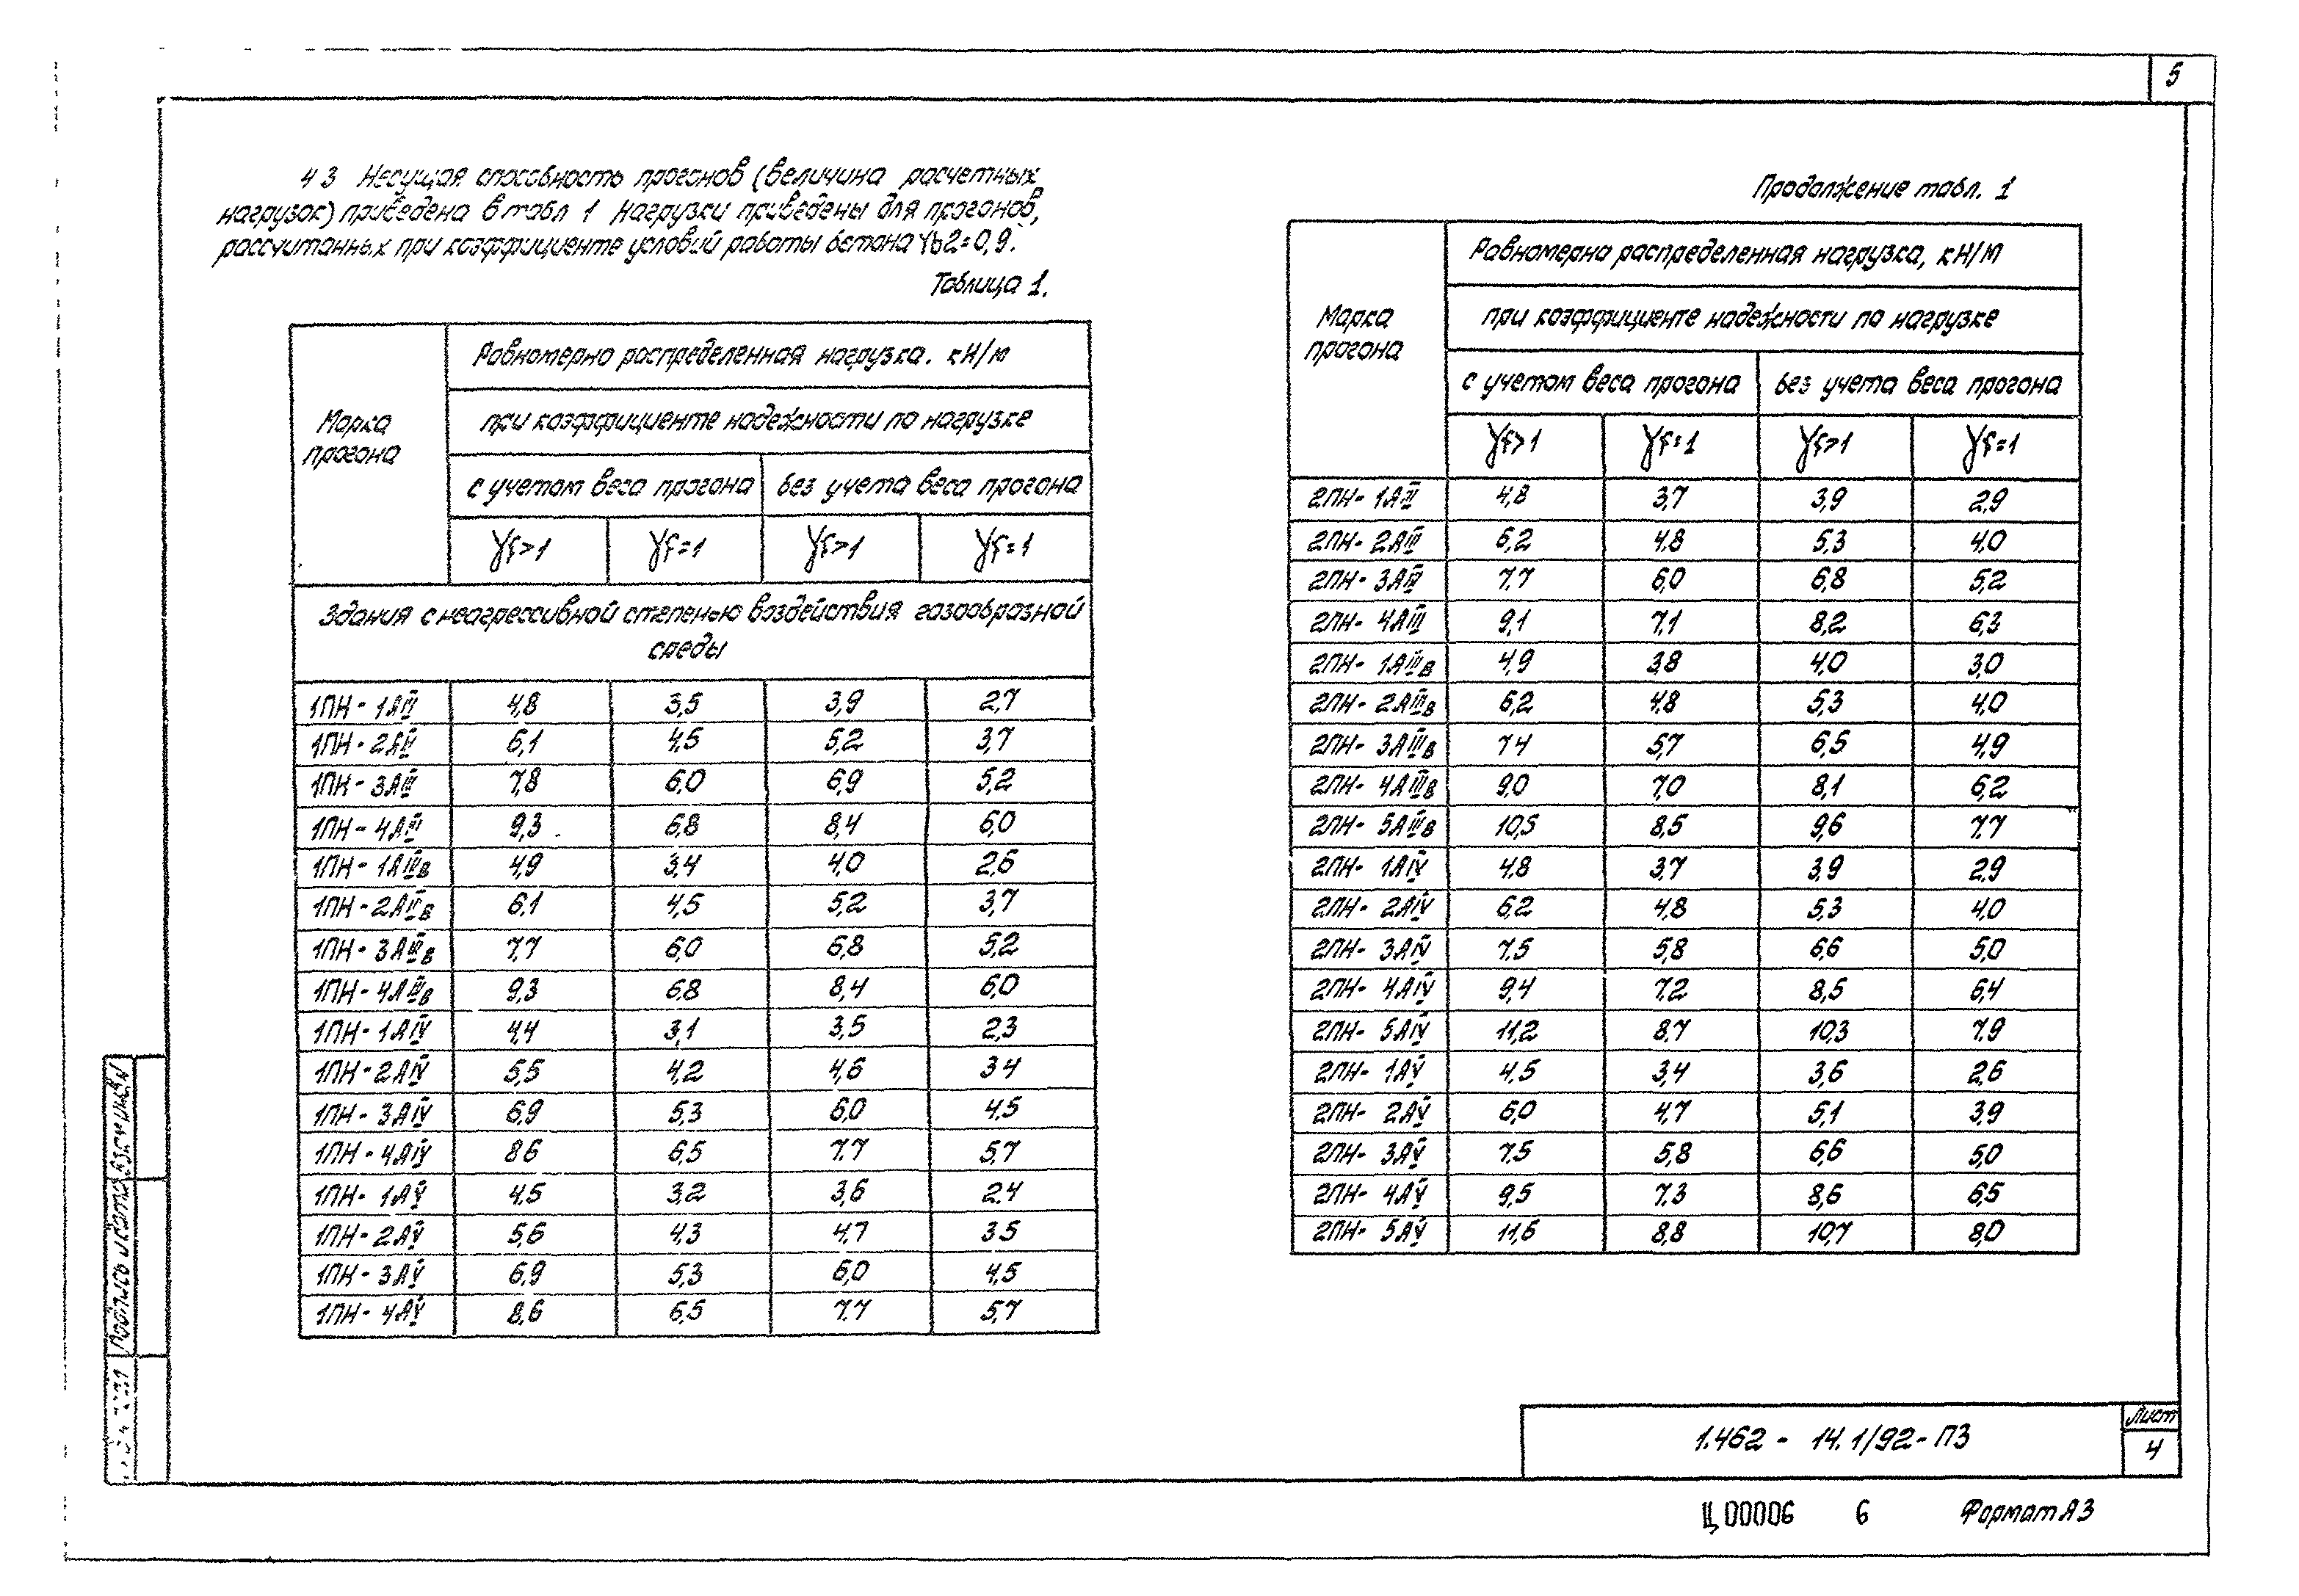 5
4 3 Несущая способность прогонов (величина расчетных
нагрузок) приведена в табл 1 Нагрузки приведены для прогонов,
рассчитанных при коэффициенте условий работы бетона γb2=0,9.
Таблица 1.
Марка прогона
Равномерно распределенная нагрузка. кН/м
при коэффициенте надежности по нагрузке
с учетом веса прогона без учета веса прогона
γf>1 γf=1 γf>1 γf=1
Здания с неагрессивной степенью воздействия газообразной
среды
1ПН-1АIII 4,8 3,5 3,9 2,7
1ПН-2АIII 6,1 4,5 5,2 3,7
1ПН-3АIII 7,8 6,0 6,9 5,2
1ПН-4АIII 9,3 6,8 8,4 6,0
1ПН-1АIIIв 4,9 3,4 4,0 2,6
1ПН-2АIIIв 6,1 4,5 5,2 3,7
1ПН-3АIIIв 7,7 6,0 6,8 5,2
1ПН-4АIIIв 9,3 6,8 8,4 6,0
1ПН-1АIV 4,4 3,1 3,5 2,3
1ПН-2АIV 5,5 4,2 4,6 3 4
1ПН-3АIV 6,9 5,3 6,0 4,5
1ПН-4АIV 8 6 6,5 7.7 5,7
1ПН-1АV 4,5 3,2 3,6 2.4
1ПН-2АV 5,6 4,3 4,7 3 5
1ПН-3АV 6,9 5,3 6,0 4,5
1ПН-4АV 8,6 6,5 7.7 5,7
Продолжение табл. 1
Марка
прогона
Равномерна распределенная нагрузка, кН/М
при коэффициенте надежности по нагрузке
с учетом веса прогона без учета веса прогона
γf>1 γf=1 γf>1 γf=1
2ПН-1АIII 4,8 3,7 3,9 2,9
2ПН-2АIII 6,2 4,8 5,3 4,0
2ПН-3АIII 7.7 6,0 6,8 5,2
2ПН-4АIII 9,1 7,1 8,2 6,3
2ПН-1АIIIв 4,9 3,8 4,0 3,0
2ПН-2АIIIв 6,2 4,8 5,3 4,0
2ПН-3АIIIв 7 4 5,7 6,5 4,9
2ПН-4АIIIв 9,0 7,0 8,1 6,2
2ПН-5АIIIв 10,5 8,5 9,6 7.7
2ПН-1АIV 4,8 3,7 3,9 2,9
2ПН-2АIV 6,2 4,8 5,3 4,0
2ПН-3АIV 7.5 5,8 6,6 5,0
2ПН-4АIV 9,4 7,2 8,5 6,4
2ПН-5АIV 11,2 8,7 10,3 7.9
2ПН-1АV 4,5 3,4 3,6 2,6
2ПН-2АV 6,0 4,7 5,1 3,9
2ПН-3АV 7.5 5,8 6,6 5,0
2ПН-4АV 9,5 7.3 8,6 6,5
2ПН-5АV 11,6 8,8 10,7 8,0
Подпись и дата
1.462 - 14.1/92-ПЗ
Лист
4
Ц00006 6 Формат А3